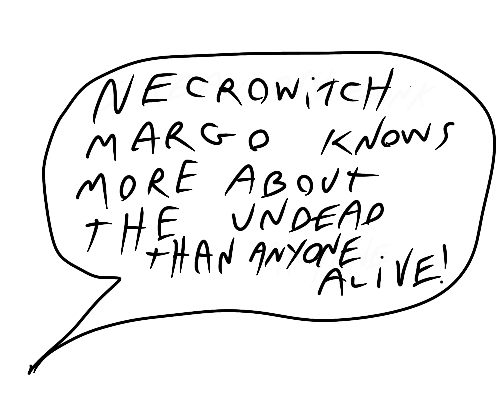 NECROWiTCH
MARGO KNOWS
MORE ABOUT
THE UNDEAD
THAN ANYONE
ALiVE!